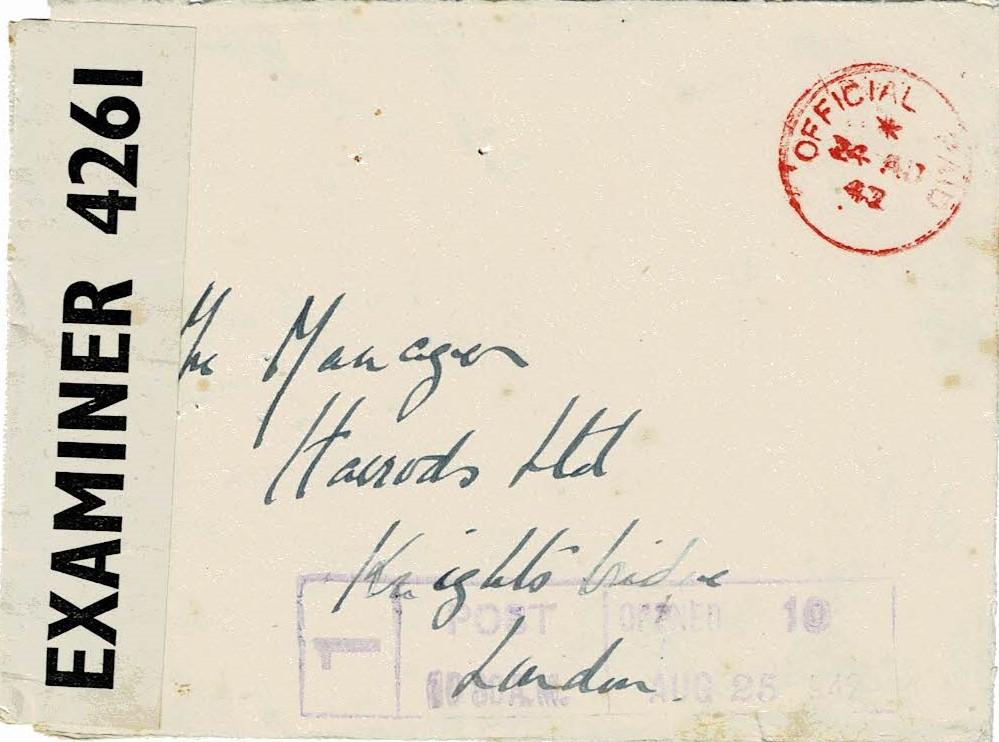 EXAMINER 4261
OFFICIAL PAID
*
24 AU
42
The Manager
Harrods Ltd
Knightsbridge
London
1
POST OPENED 10
10 30 A.M. AUG 25 1942